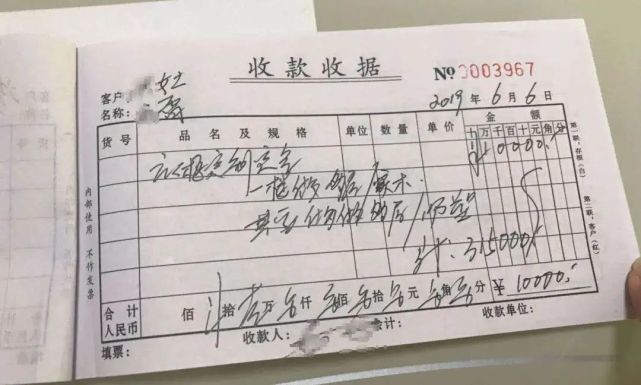 收款收据
No 0003967
客户
名称：
女士
2019年6月6日
货号 品名及规格 单位 数量 单价 金额
十万千百十元角分
衣柜定制定金
¥10000.
橡木.
其它
计: 315000.
合计
人民币
佰 拾壹万零仟零佰零拾零元零角零分 ¥10000.
填票：
收款人：
会计：
收款单位：
内部使用 不作发票
第一联：存根（白）
第二联：客户（红）